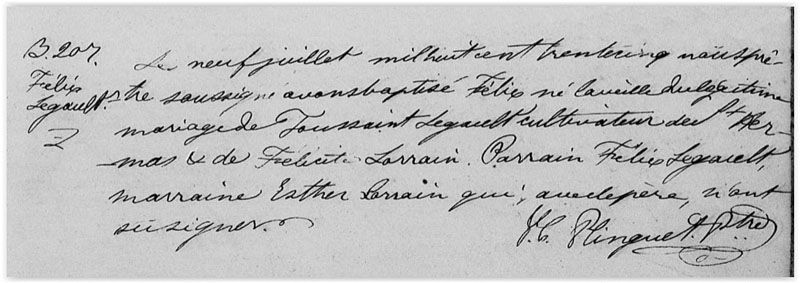 B. 207.
Félix
Legault.
Le neuf juillet mil huit cent trente cinq nous prê-
tre soussigné avons baptisé Félix né la veille du légitime
mariage de Toussaint Legault cultivateur de St Her-
mas & de Félicité Lorrain. Parrain Félix Legault,
marraine Esther Lorrain qui, avec le père, n'ont
su signer.
Ringuet. Ptre